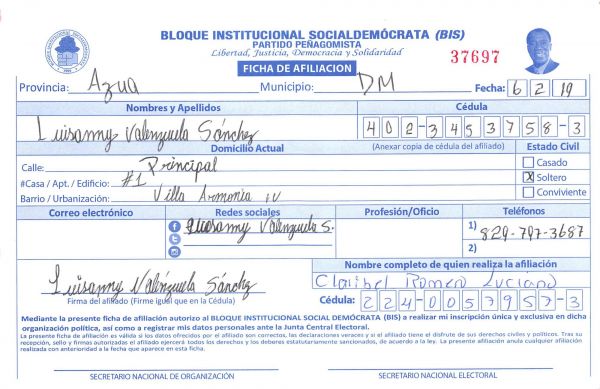 BLOQUE INSTITUCIONAL SOCIALDEMÓCRATA (BIS)
PARTIDO PEÑAGOMISTA
Libertad, Justicia, Democracia y Solidaridad
37697
FICHA DE AFILIACION
Provincia: Azua Municipio: DM Fecha: 6 2 19
Nombres y Apellidos Cédula
Luisanny Valenzuela Sánchez 402-3453758-3
Domicilio Actual (Anexar copia de cédula del afiliado) Estado Civil
Calle: Principal Casado
#Casa / Apt. / Edificio: #1 X Soltero
Barrio / Urbanización: Villa Armonía IV Conviviente
Correo electrónico Redes sociales Profesión/Oficio Teléfonos
Luisanny Valenzuela S. 1) 829-797-3687
2)
Luisanny Valenzuela Sánchez
Firma del afiliado (Firme igual que en la Cédula)
Nombre completo de quien realiza la afiliación
Claribel Romero Luciano
Cédula: 224-0057957-3
Mediante la presente ficha de afiliación autorizo al BLOQUE INSTITUCIONAL SOCIAL DEMÓCRATA (BIS) a realizar mi inscripción única y exclusiva en dicha
organización política, así como a registrar mis datos personales ante la Junta Central Electoral.
La presente ficha de afiliación es válida si los datos ofrecidos por el afiliado son correctos, las declaraciones veraces y si el titular tiene el disfrute de sus derechos civiles y políticos. Tras su
recepción, sello y firmas autorizadas el afiliado ejercerá todos los derechos y los deberes estatutariamente sancionados, de acuerdo a la ley. La presente afiliación anula cualquier afiliación
realizada con anterioridad a la fecha que aparece en esta ficha.
SECRETARIO NACIONAL DE ORGANIZACIÓN SECRETARIO NACIONAL ELECTORAL